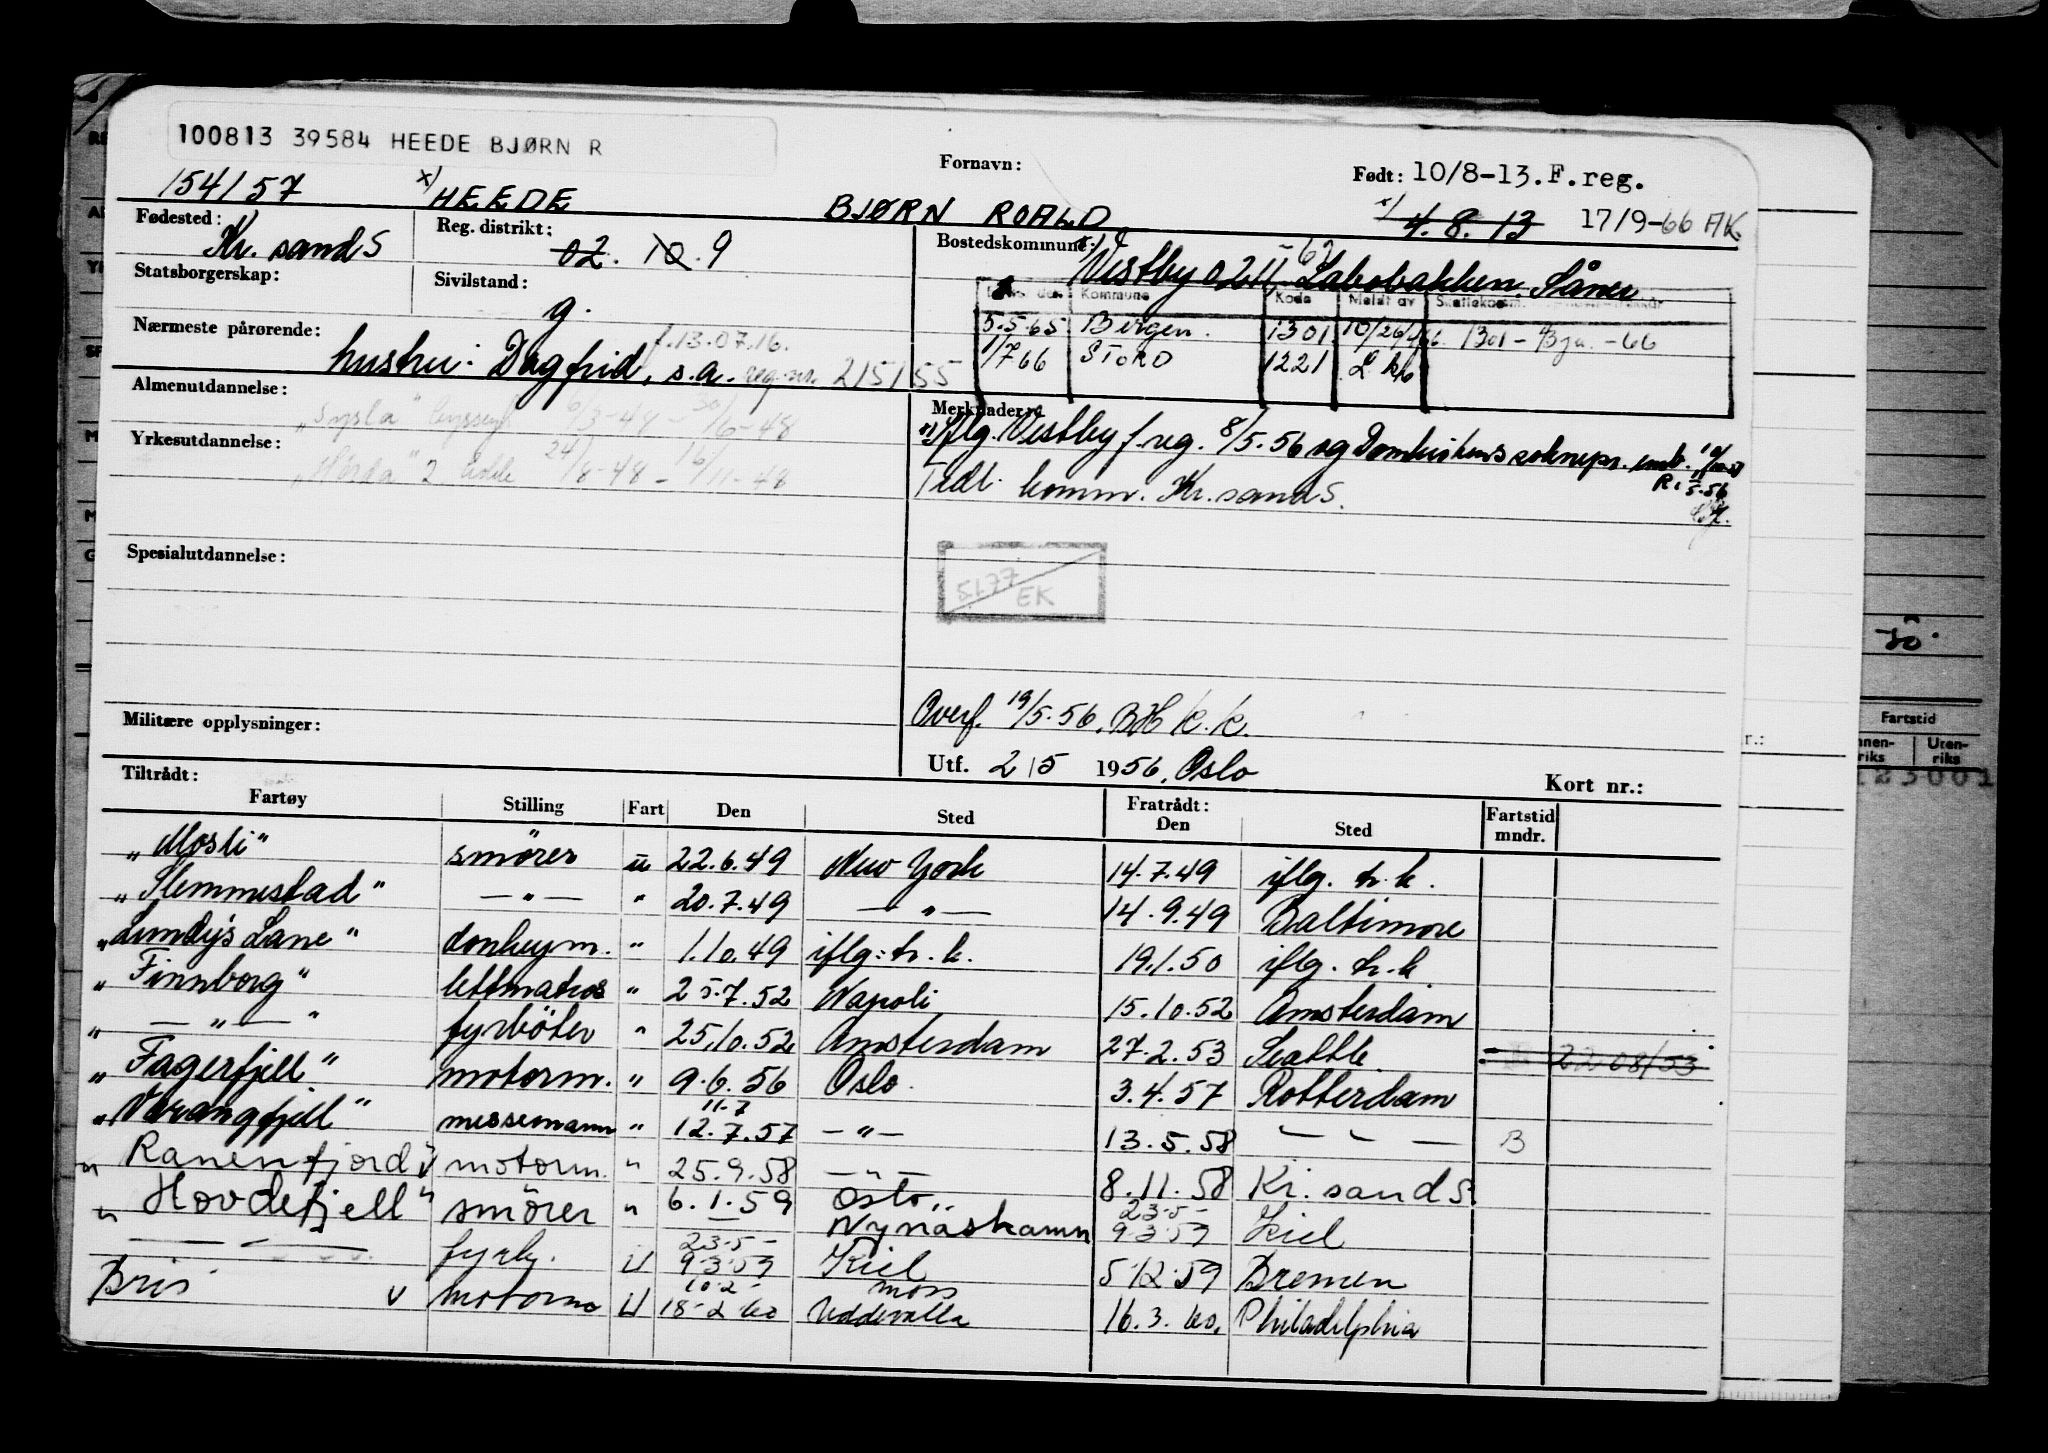 100813 39584 HEEDE BJØRN R
154/57 x) HEEDE
Fornavn: BJØRN ROALD
Født: 10/8-13. F.reg.
x) 4.8.13 17/9-66 AK
Fødested: Kr. sand S
Reg. distrikt: 02. 10. 9
Bostedskommune: Vestby 0211 Labobakken. Såner
Statsborgerskap:
Sivilstand: g.
Kommune Kode Meldt av
5.5.65 Bergen. 1301 10/26/4 66 1301 - -66
1/7 66 STORD 1221
Nærmeste pårørende: hustru: Dagfrid, s.a. reg.nr. 215155
f. 13.07.16.
Almenutdannelse:
"Sysla" 6/3-48 - 30/6-48
Yrkesutdannelse:
"Hørda" 2 24/8-48 - 16/11-48
Merknader:
x) Iflg. Vestby f.reg. 8/5.56 og Domkirkens
Tidl. komm. Kr. sand S.
Spesialutdannelse:
5.1.77 EK
Militære opplysninger:
Overf. 19/5.56. BH k.k.
Utf. 2/5 1956, Oslo
Kort nr.:
Tiltrådt:
Fartøy Stilling Fart Den Sted Fratrådt: Den Sted Fartstid mndr.
"Mosli" smører u 22.6.49 New York 14.7.49 iflg. h.k.
"Slemmestad" — " — " 20.7.49 — " — 14.9.49 Baltimore
"Lundy's Lane" donkeym. " 1.10.49 iflg. h.k. 19.1.50 iflg. h.k.
"Finnborg" lettmatros " 25.7.52 Napoli 15.10.52 Amsterdam
" — " — " fyrbøter " 25.10.52 Amsterdam 27.2.53 Seattle 22 08/53
"Fagerfjell" motorm. " 9.6.56 Oslo. 3.4.57 Rotterdam
"Varangfjell" messemann " 11.7 12.7.57 — " — 13.5.58 — " — B
"Ranenfjord" motorm. " 25.9.58 — " — 8.11.58 Kr. sand S.
"Hovdefjell" smører " 6.1.59 Oslo Nynäshamn 23.5 - 9.3.59 Kiel
— " — fyrb. U 23.5 - 9.3.59 Kiel 5.12.59 Bremen
Bris v motorm U 10.2 - 18-2 60 Moss Uddevalla 16.3.60. Philadelphia
Fartstid
Innen-riks Uten-riks
123001